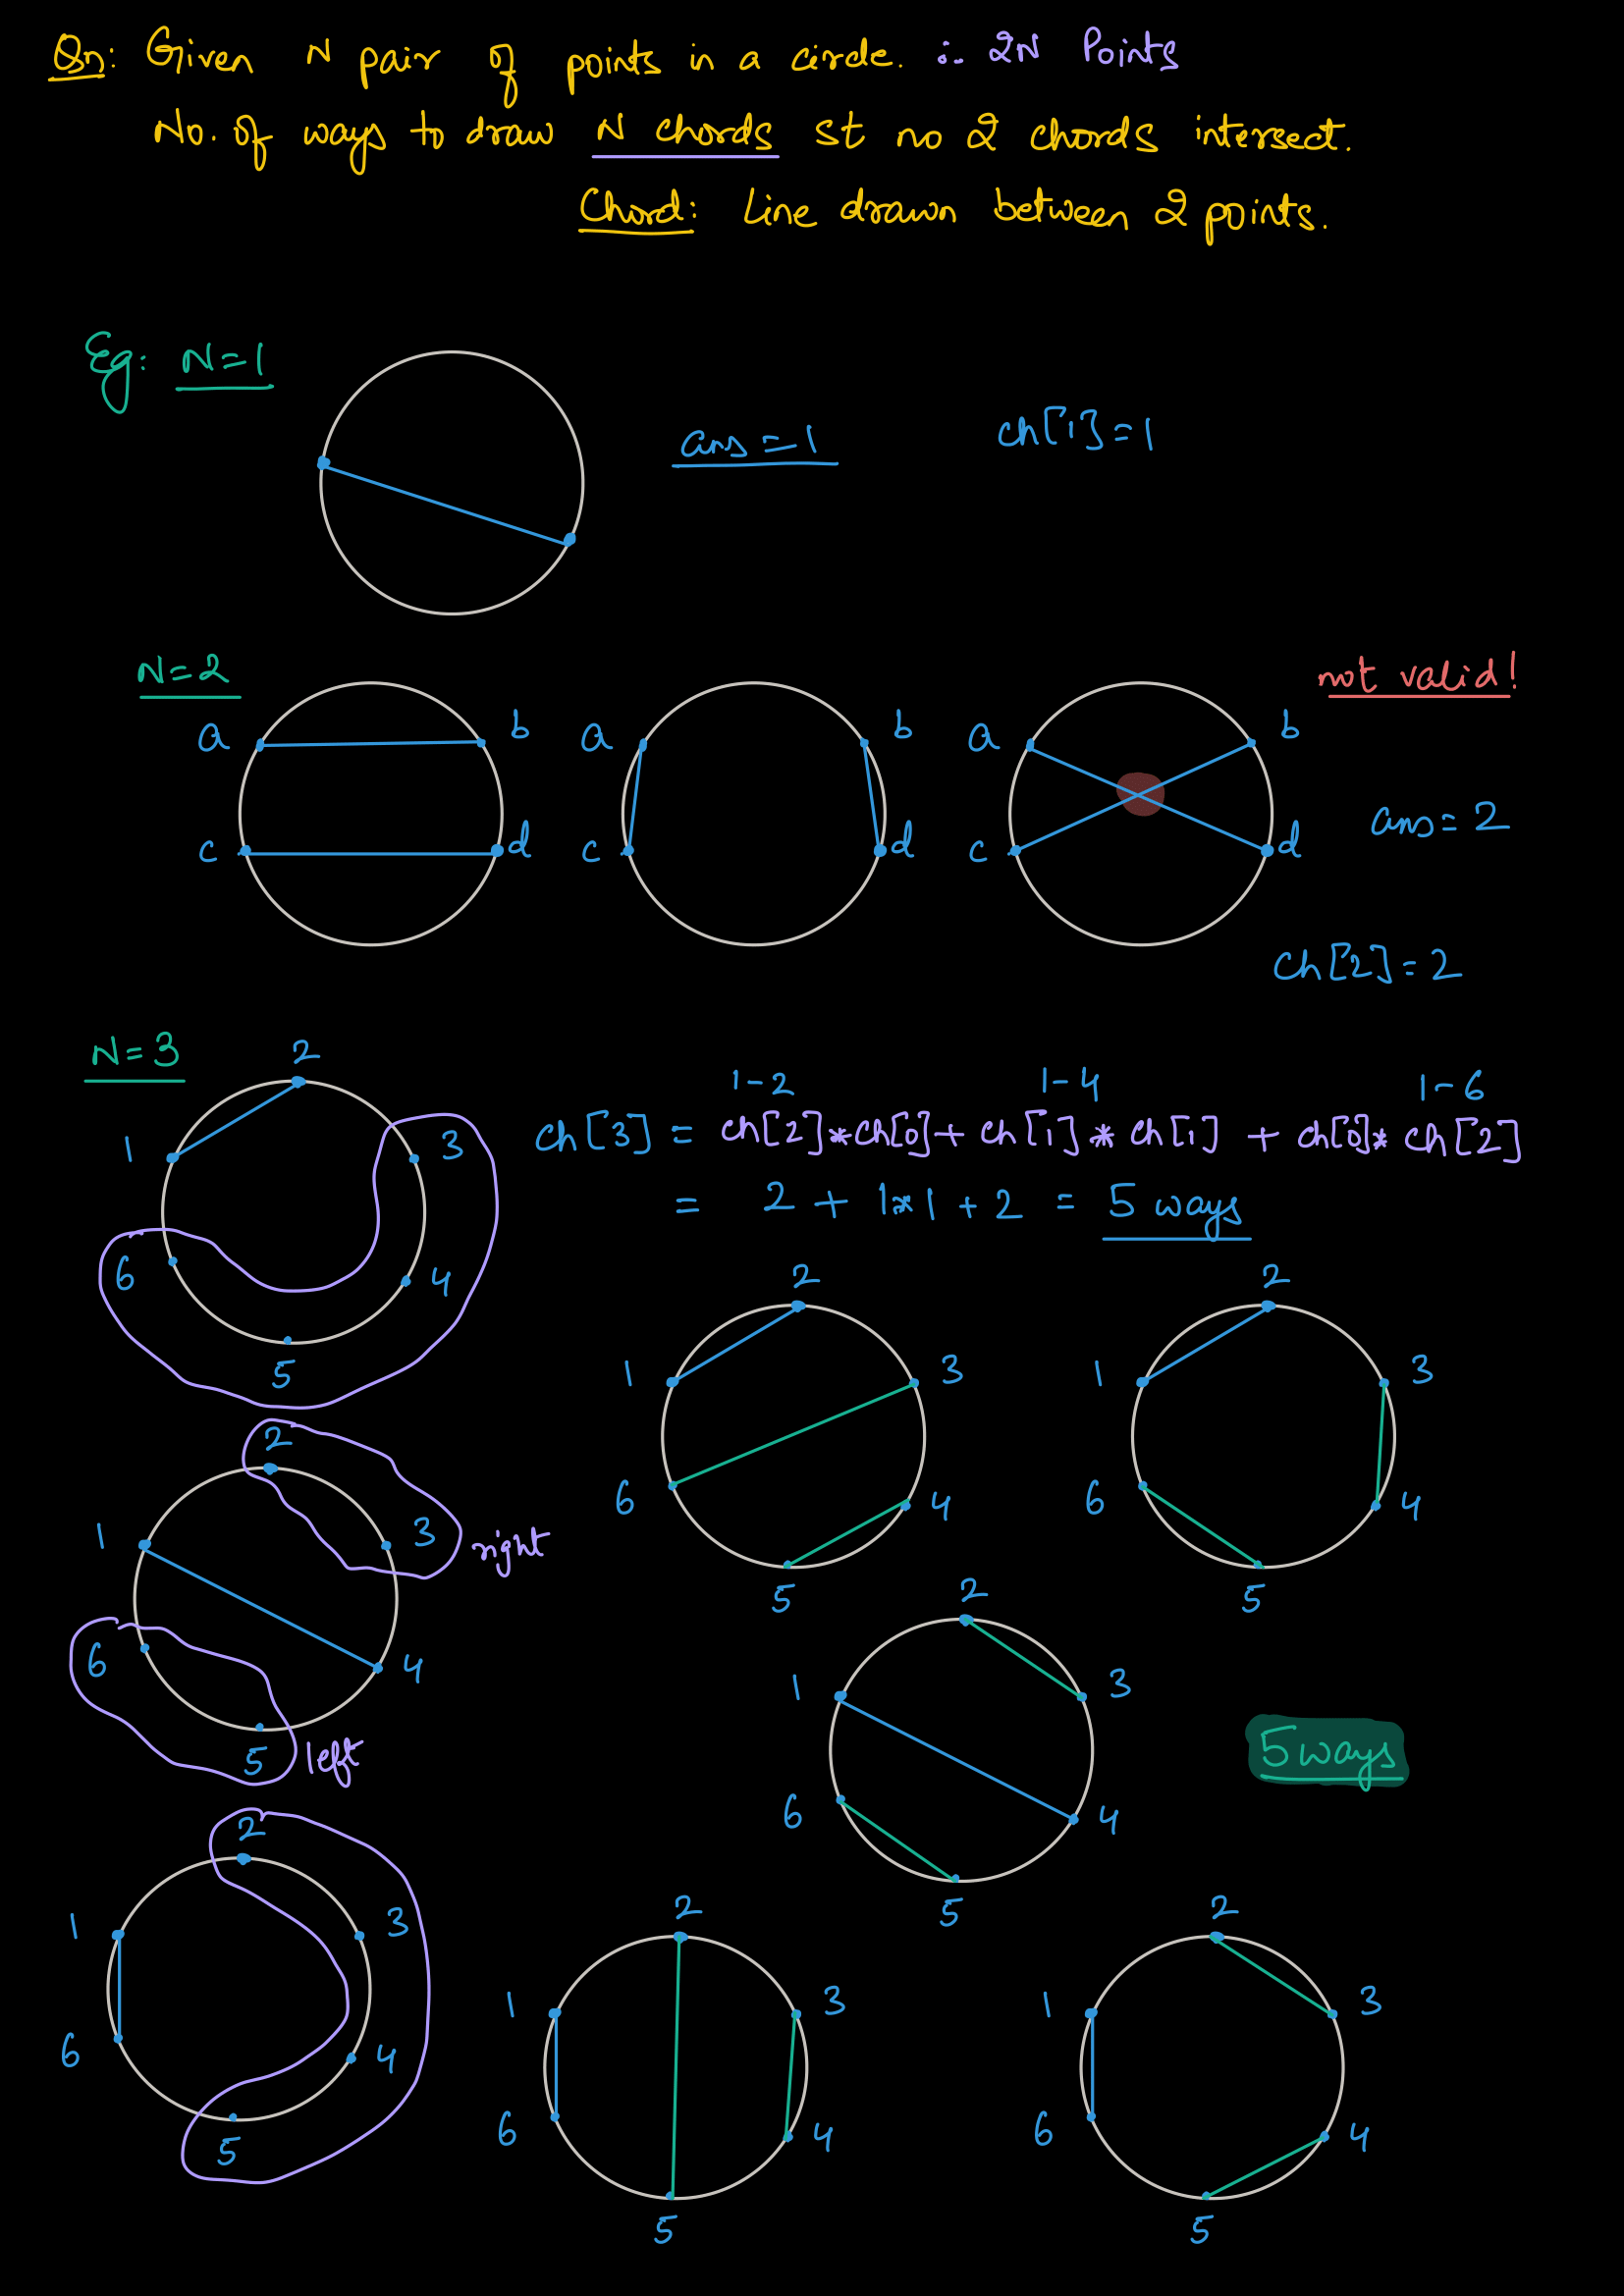 Qn: Given N pair of points in a circle. ∴ 2N Points
No. of ways to draw N chords st no 2 chords intersect.
Chord: Line drawn between 2 points.
Eg: N=1
ans = 1
ch[1] = 1
N=2
not valid!
a b
c d
a b
c d
a b
c d
ans = 2
ch[2] = 2
N=3
1 2 3 4 5 6
1-2 1-4 1-6
ch[3] = ch[2]*ch[0] + ch[1]*ch[1] + ch[0]*ch[2]
= 2 + 1*1 + 2 = 5 ways
1 2 3 4 5 6
1 2 3 4 5 6
1 2 3 4 5 6
right
left
1 2 3 4 5 6
5 ways
1 2 3 4 5 6
1 2 3 4 5 6
1 2 3 4 5 6